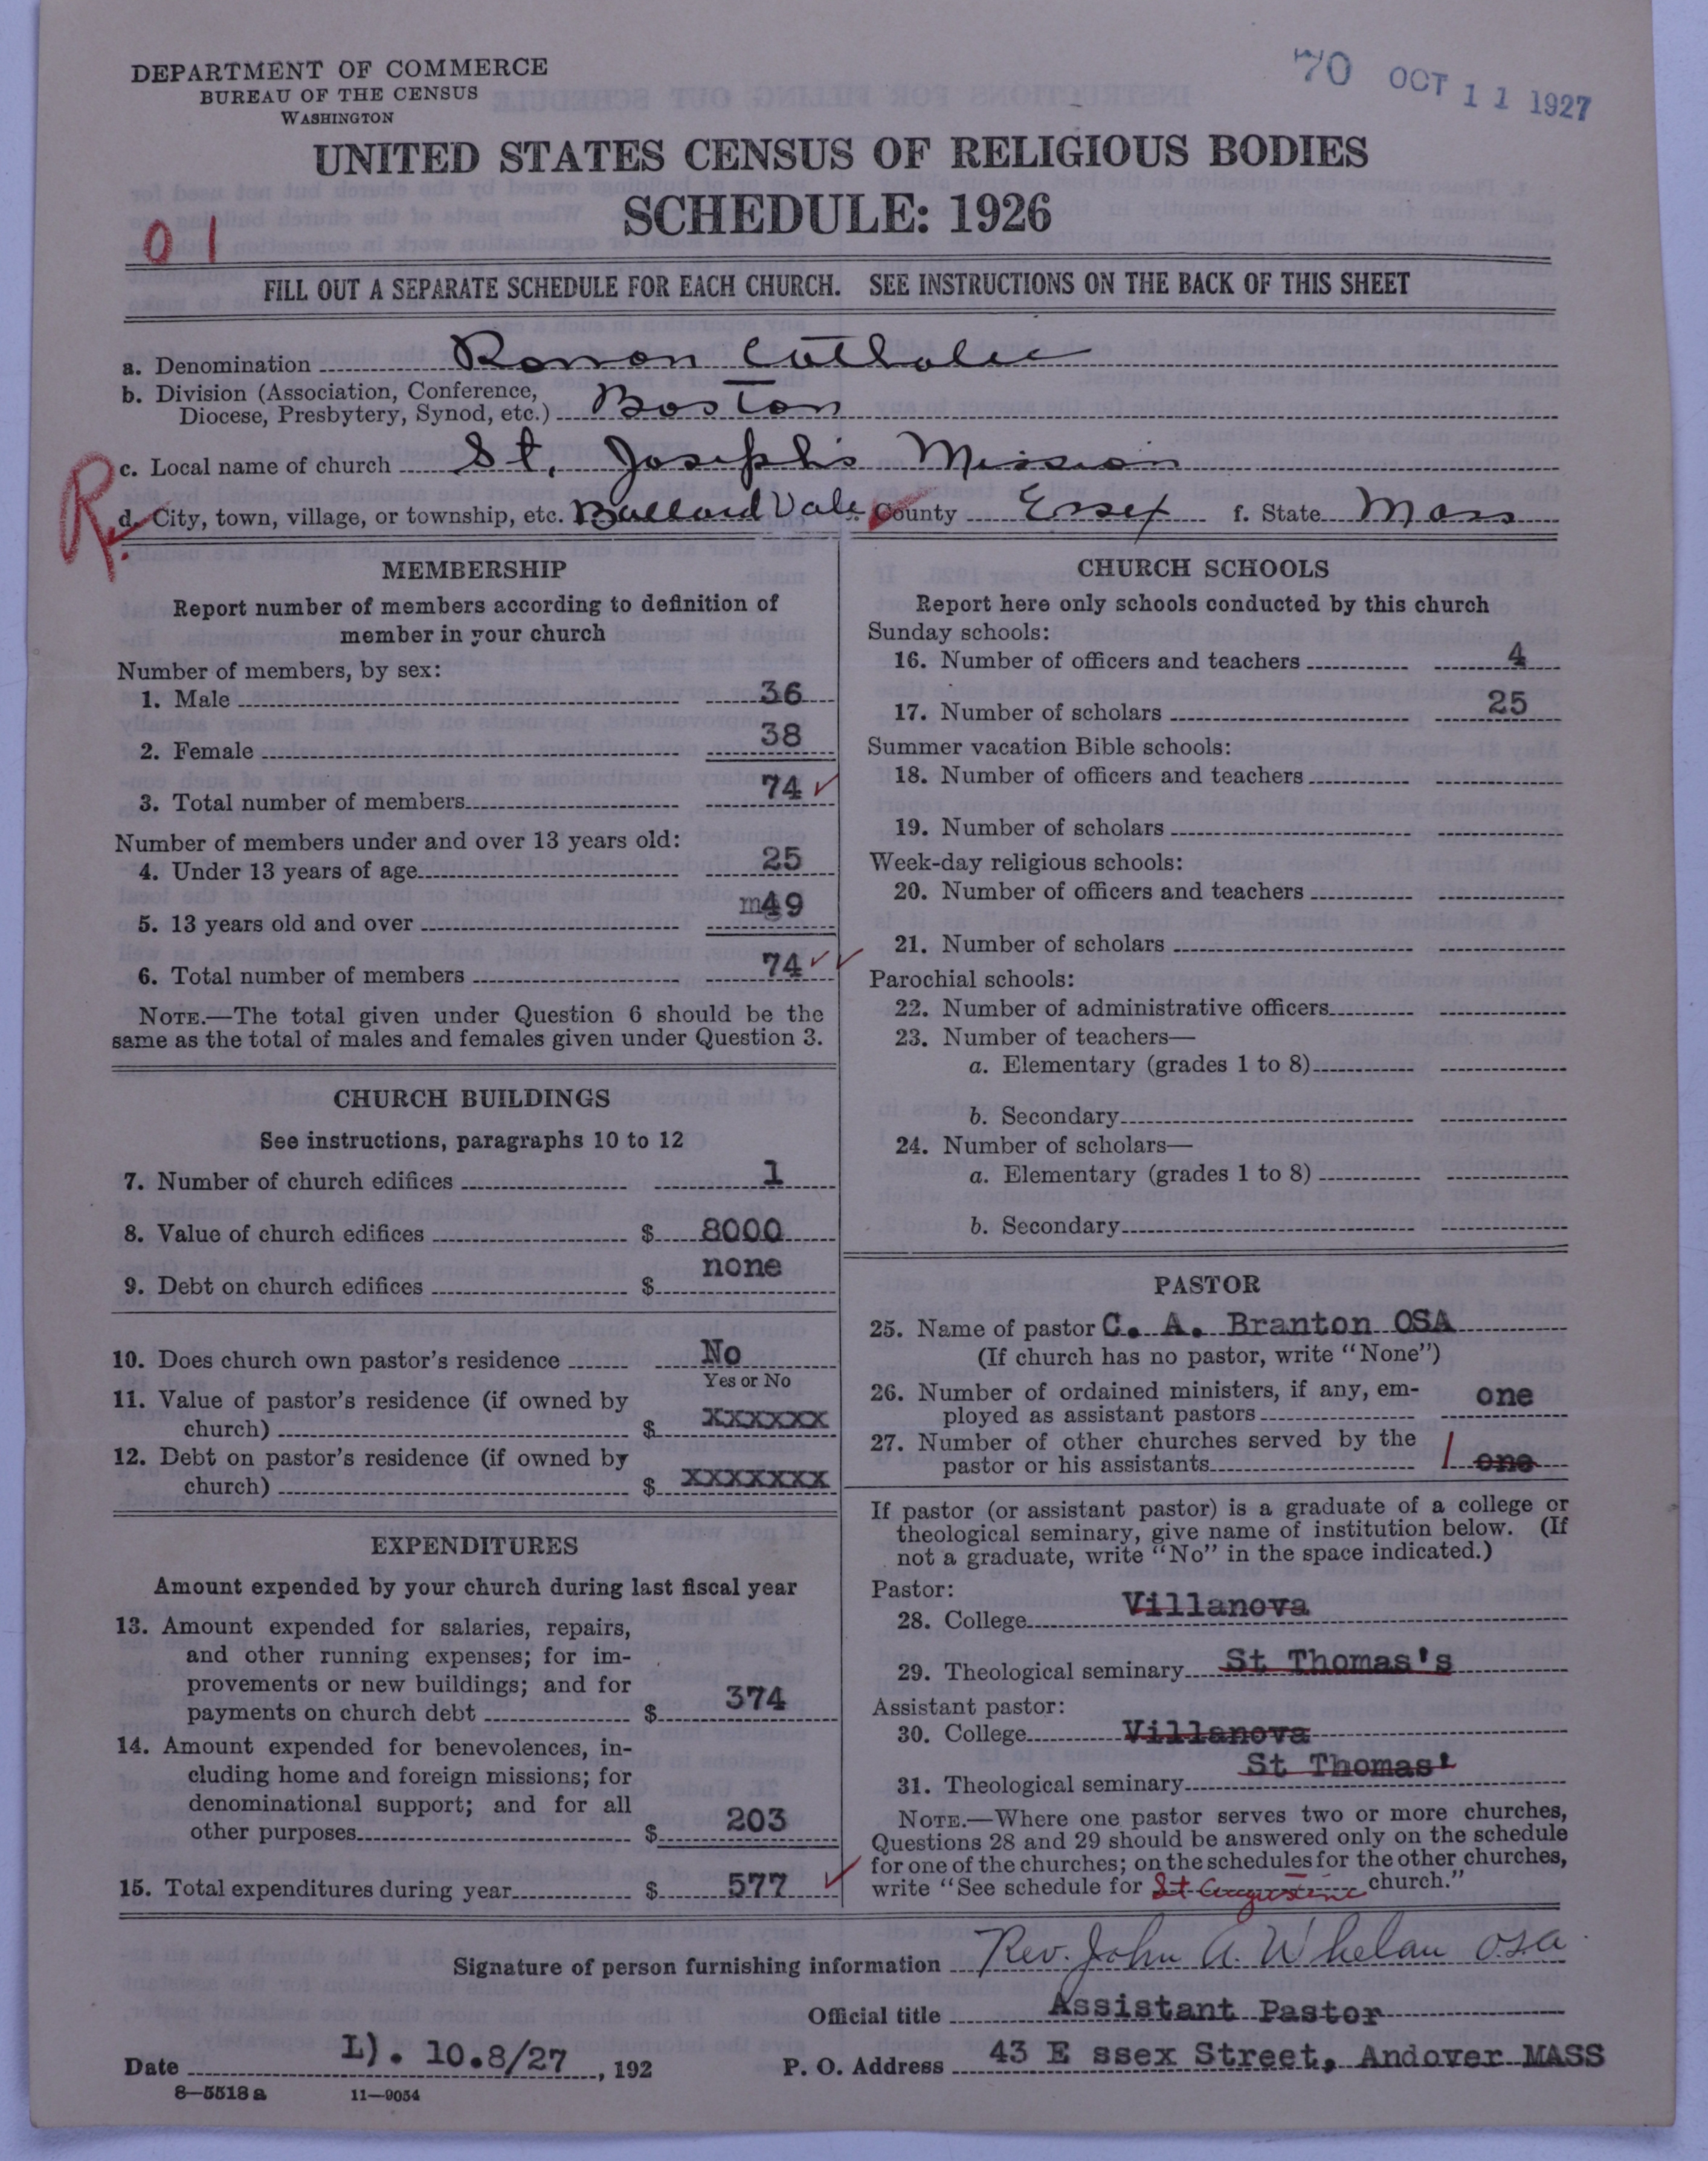 DEPARTMENT OF COMMERCE
BUREAU OF THE CENSUS
WASHINGTON
70 OCT 11 1927
UNITED STATES CENSUS OF RELIGIOUS BODIES
SCHEDULE: 1926
01
FILL OUT A SEPARATE SCHEDULE FOR EACH CHURCH. SEE INSTRUCTIONS ON THE BACK OF THIS SHEET
a. Denomination Roman Catholic
b. Division (Association, Conference,
Diocese, Presbytery, Synod, etc.) Boston
c. Local name of church St. Joseph's Mission
R.
d. City, town, village, or township, etc. Ballard Vale County Essex f. State Mass
MEMBERSHIP
Report number of members according to definition of
member in your church
Number of members, by sex:
1. Male 36
2. Female 38
3. Total number of members 74 ✓
Number of members under and over 13 years old:
4. Under 13 years of age 25
5. 13 years old and over m49
6. Total number of members 74 ✓ ✓
NOTE.—The total given under Question 6 should be the
same as the total of males and females given under Question 3.
CHURCH BUILDINGS
See instructions, paragraphs 10 to 12
7. Number of church edifices 1
8. Value of church edifices $ 8000
9. Debt on church edifices $ none
10. Does church own pastor's residence No
Yes or No
11. Value of pastor's residence (if owned by
church) $ xxxxxx
12. Debt on pastor's residence (if owned by
church) $ xxxxxxx
EXPENDITURES
Amount expended by your church during last fiscal year
13. Amount expended for salaries, repairs,
and other running expenses; for im-
provements or new buildings; and for
payments on church debt $ 374
14. Amount expended for benevolences, in-
cluding home and foreign missions; for
denominational support; and for all
other purposes $ 203
15. Total expenditures during year $ 577 ✓
CHURCH SCHOOLS
Report here only schools conducted by this church
Sunday schools:
16. Number of officers and teachers 4
17. Number of scholars 25
Summer vacation Bible schools:
18. Number of officers and teachers
19. Number of scholars
Week-day religious schools:
20. Number of officers and teachers
21. Number of scholars
Parochial schools:
22. Number of administrative officers
23. Number of teachers—
a. Elementary (grades 1 to 8)
b. Secondary
24. Number of scholars—
a. Elementary (grades 1 to 8)
b. Secondary
PASTOR
25. Name of pastor C. A. Branton OSA
(If church has no pastor, write "None")
26. Number of ordained ministers, if any, em-
ployed as assistant pastors one
27. Number of other churches served by the
pastor or his assistants 1 one
If pastor (or assistant pastor) is a graduate of a college or
theological seminary, give name of institution below. (If
not a graduate, write "No" in the space indicated.)
Pastor:
28. College Villanova
29. Theological seminary St Thomas's
Assistant pastor:
30. College Villanova
St Thomas'
31. Theological seminary
NOTE.—Where one pastor serves two or more churches,
Questions 28 and 29 should be answered only on the schedule
for one of the churches; on the schedules for the other churches,
write "See schedule for St Augustine church."
Signature of person furnishing information Rev. John A. Whelan OSA
Official title Assistant Pastor
Date L). 10.8/27, 192
P. O. Address 43 E ssex Street, Andover MASS
8—5518 a 11—9054